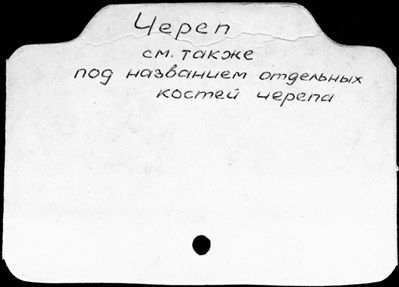 Череп
см. также
под названием отдельных
костей черепа